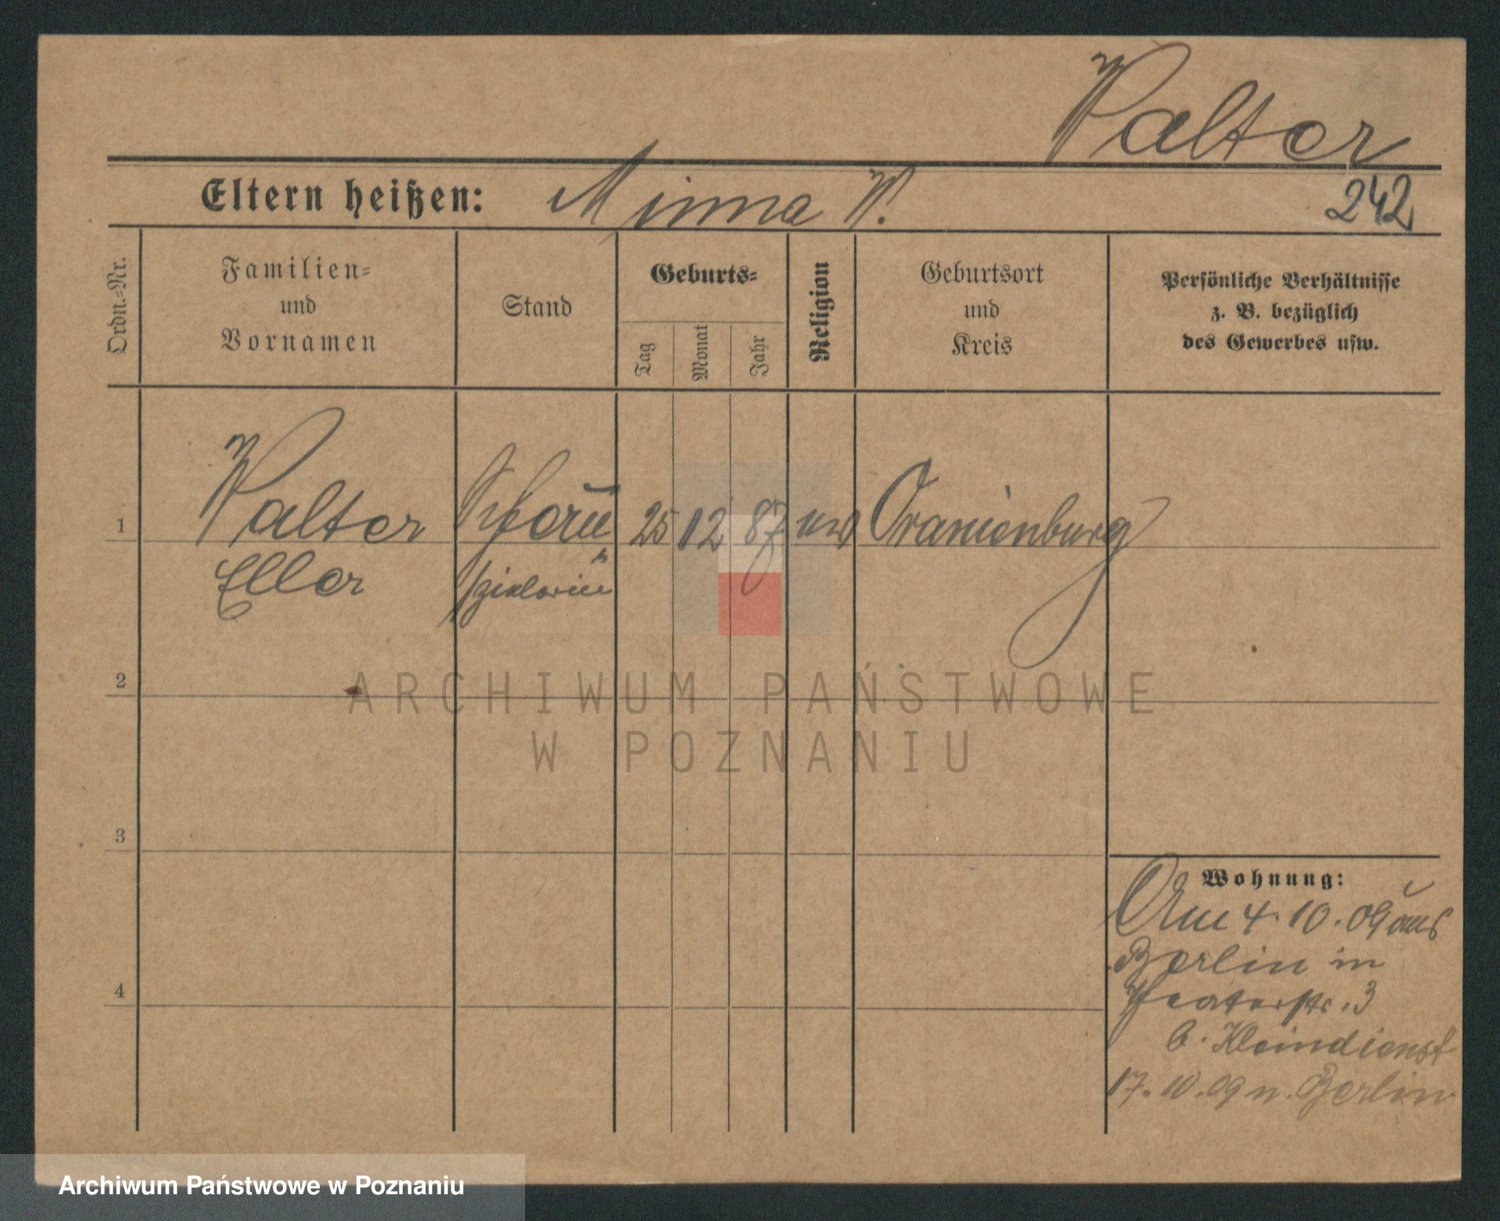 Walter
Eltern heißen: Minna W.
242
Ordn.-Nr.
Familien-
und
Vornamen
Stand
Geburts-
Tag
Monat
Jahr
Religion
Geburtsort
und
Kreis
Persönliche Verhältnisse
z. B. bezüglich
des Gewerbes usw.
1
Walter
Eller
25 12 87
Oranienburg
2
3
4
ARCHIWUM PAŃSTWOWE
W POZNANIU
Wohnung:
Am 4.10.09 aus
Berlin in
3
b. Kleindienst
17.10.09 n. Berlin
Archiwum Państwowe w Poznaniu